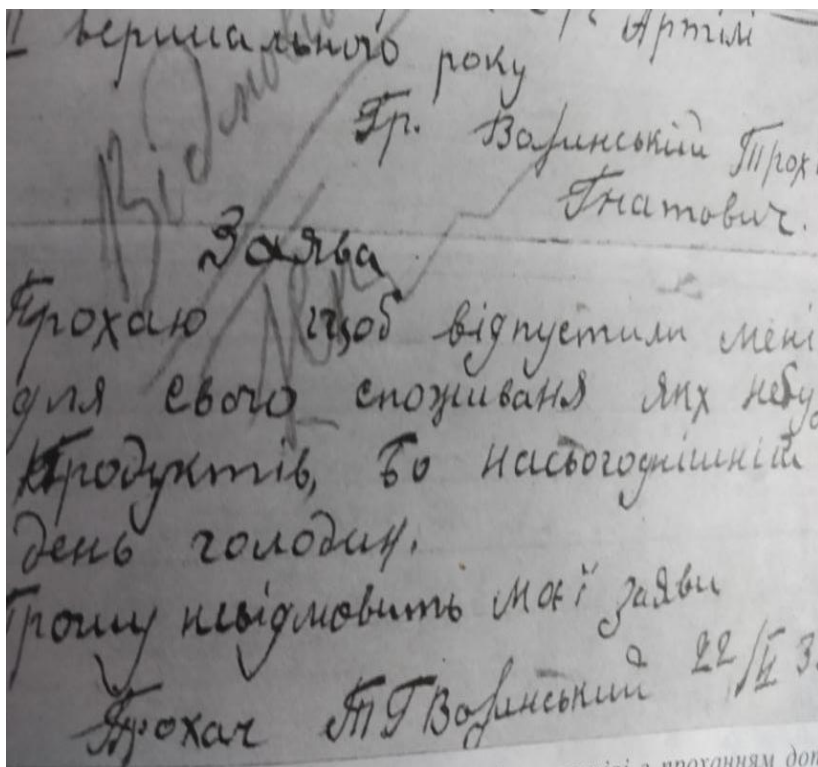 II вершального року Артілі
Гр. Волинський Трох
Гнатович.
Відмов
Заява
Прохаю щоб відпустили мені
для свого споживаня яких небу
Продуктів, бо насьогоднішній
день голодую.
Прошу невідмовить моєї заяви
Прохач Т Г Волинський 22/II 3
з проханням доп